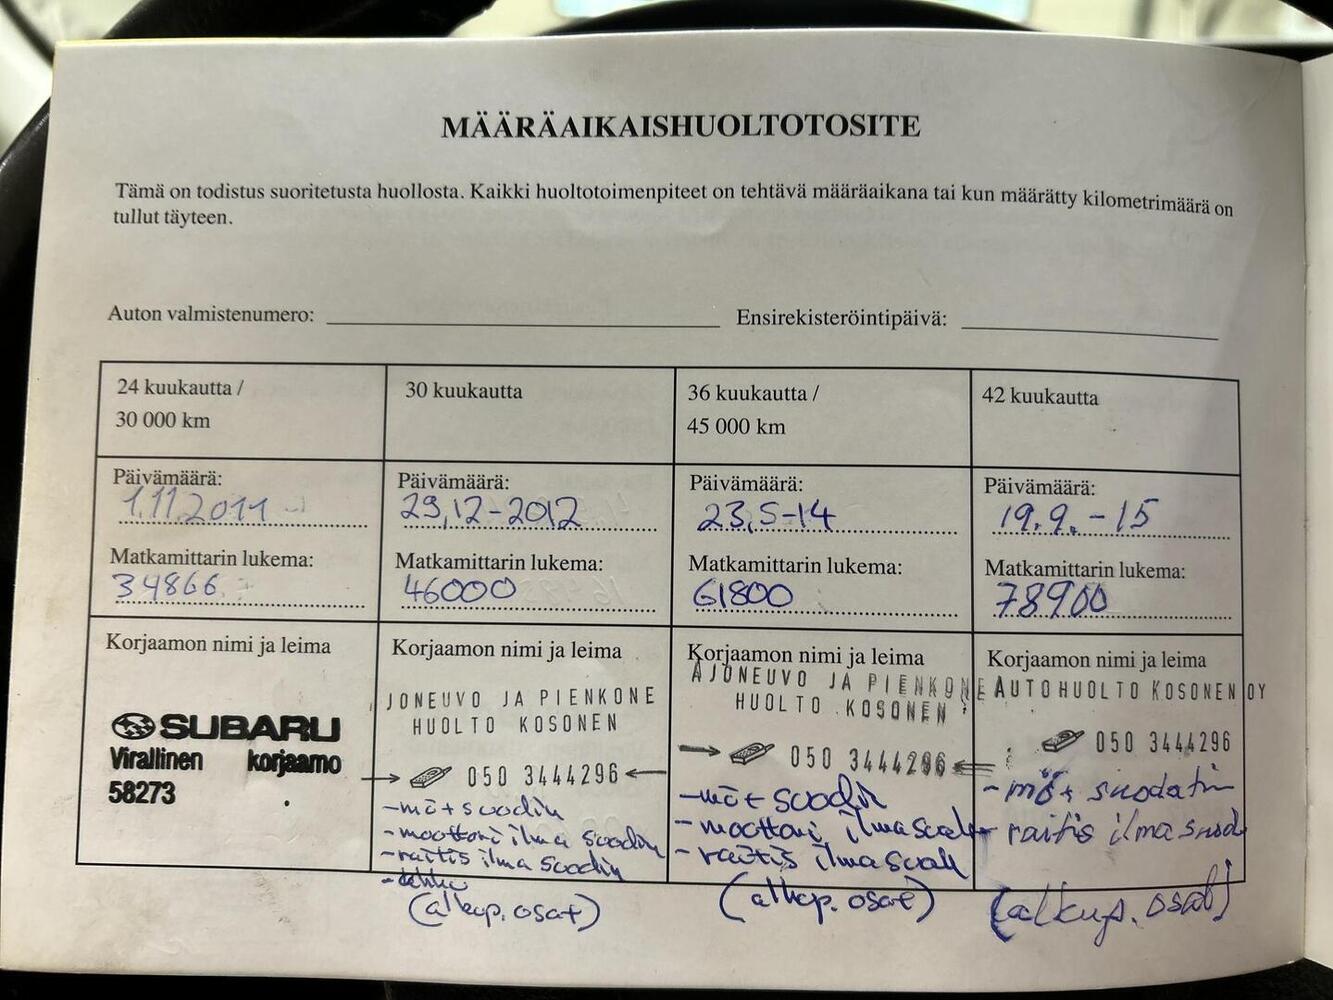 MÄÄRÄAIKAISHUOLTOTOSITE
Tämä on todistus suoritetusta huollosta. Kaikki huoltotoimenpiteet on tehtävä määräaikana tai kun määrätty kilometrimäärä on
tullut täyteen.
Auton valmistenumero:
Ensirekisteröintipäivä:
24 kuukautta /
30 000 km
Päivämäärä:
1.11.2011
Matkamittarin lukema:
34866
Korjaamon nimi ja leima
SUBARU
Virallinen korjaamo
58273
30 kuukautta
Päivämäärä:
29,12-2012
Matkamittarin lukema:
46000
Korjaamon nimi ja leima
JONEUVO JA PIENKONE
HUOLTO KOSONEN
050 3444296
-mö+suodin
-moottori ilma suodin
-raitis ilma suodin
(alkup. osat)
36 kuukautta /
45 000 km
Päivämäärä:
23,5-14
Matkamittarin lukema:
61800
Korjaamon nimi ja leima
AJONEUVO JA PIENKONE
HUOLTO KOSONEN
050 3444296
-mö+ suodin
-moottori ilma
-raitis ilma
(alkup. osat)
42 kuukautta
Päivämäärä:
19.9.-15
Matkamittarin lukema:
78900
Korjaamon nimi ja leima
AUTOHUOLTO KOSONEN OY
050 3444296
-mö+ suodatin
raitis ilma suod
(alkup. osat)